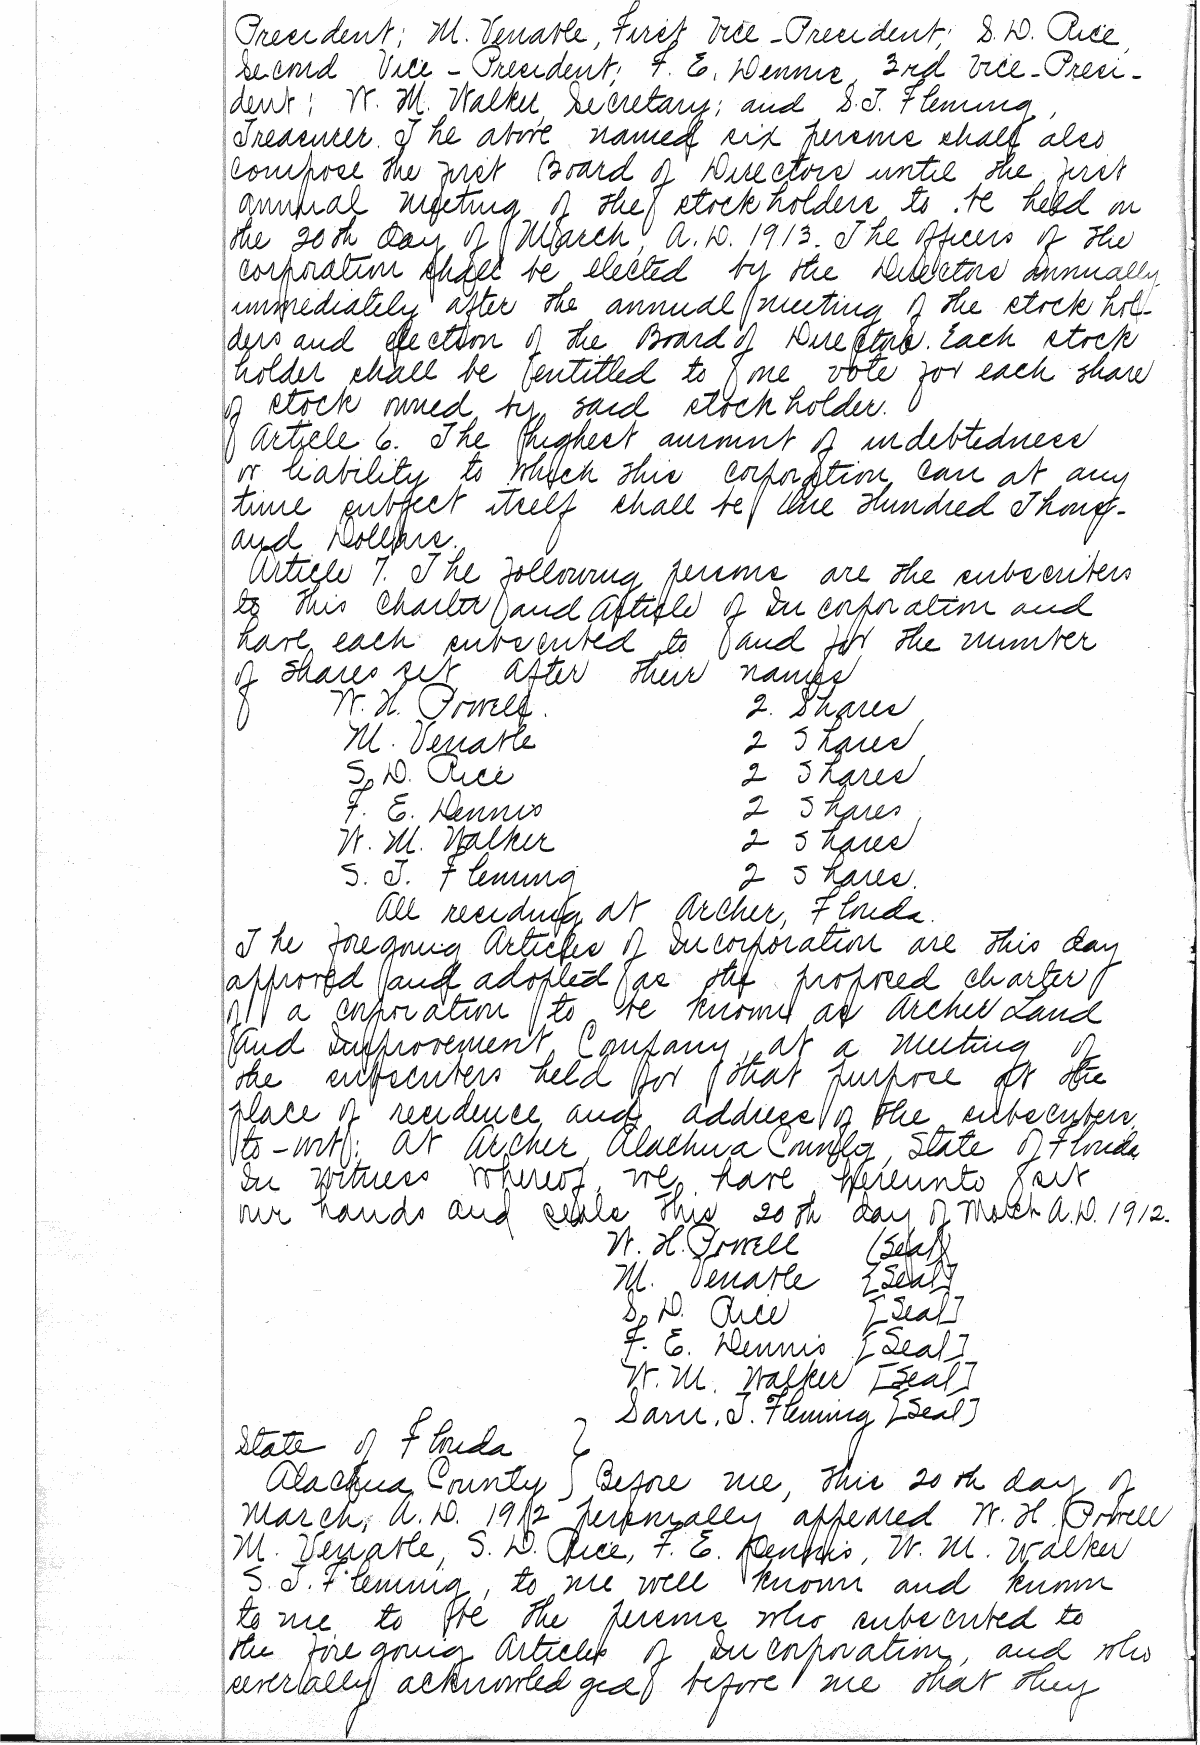 President; M. Venable, First Vice-President; S. D. Rice,
Second Vice-President; F. E. Dennis, 3rd Vice-Presi-
dent; W. M. Walker, Secretary; and S. J. Fleming,
Treasurer. The above named six persons shall also
compose the first Board of Directors until the first
annual meeting of the stockholders to be held on
the 20th Day of March, A.D. 1913. The officers of the
corporation shall be elected by the Directors annually
immediately after the annual meeting of the stockhol-
ders and election of the Board of Directors. Each stock
holder shall be entitled to one vote for each share
of stock owned by said stockholder.
Article 6. The highest amount of indebtedness
or liability to which this corporation can at any
time subject itself shall be One Hundred Thous-
and Dollars.
Article 7. The following persons are the subscribers
to this Charter and Article of Incorporation and
have each subscribed to and for the number
of shares set after their names
W. H. Powell. 2. Shares
M. Venable 2 Shares
S. D. Rice 2 Shares
F. E. Dennis 2 Shares
W. M. Walker 2 Shares
S. J. Fleming 2 Shares.
All residing at Archer, Florida.
The foregoing Articles of Incorporation are this day
approved and adopted as the proposed charter
of a corporation to be known as Archer Land
and Improvement Company, at a meeting of
the subscribers held for that purpose at the
place of residence and address of the subscribers,
to-wit: At Archer, Alachua County, State of Florida
In witness whereof, we have hereunto set
our hands and seals this 20th day of March A.D. 1912.
W. H. Powell (Seal)
M. Venable [Seal]
S. D. Rice [Seal]
F. E. Dennis [Seal]
W. M. Walker [Seal]
Sam. J. Fleming [Seal]
State of Florida }
Alachua County } Before me, this 20th day of
March, A.D. 1912 personally appeared W. H. Powell
M. Venable, S. D. Rice, F. E. Dennis, W. M. Walker
S. J. Fleming, to me well known and known
to me to be the persons who subscribed to
the foregoing Articles of Incorporation, and who
severally acknowledged before me that they